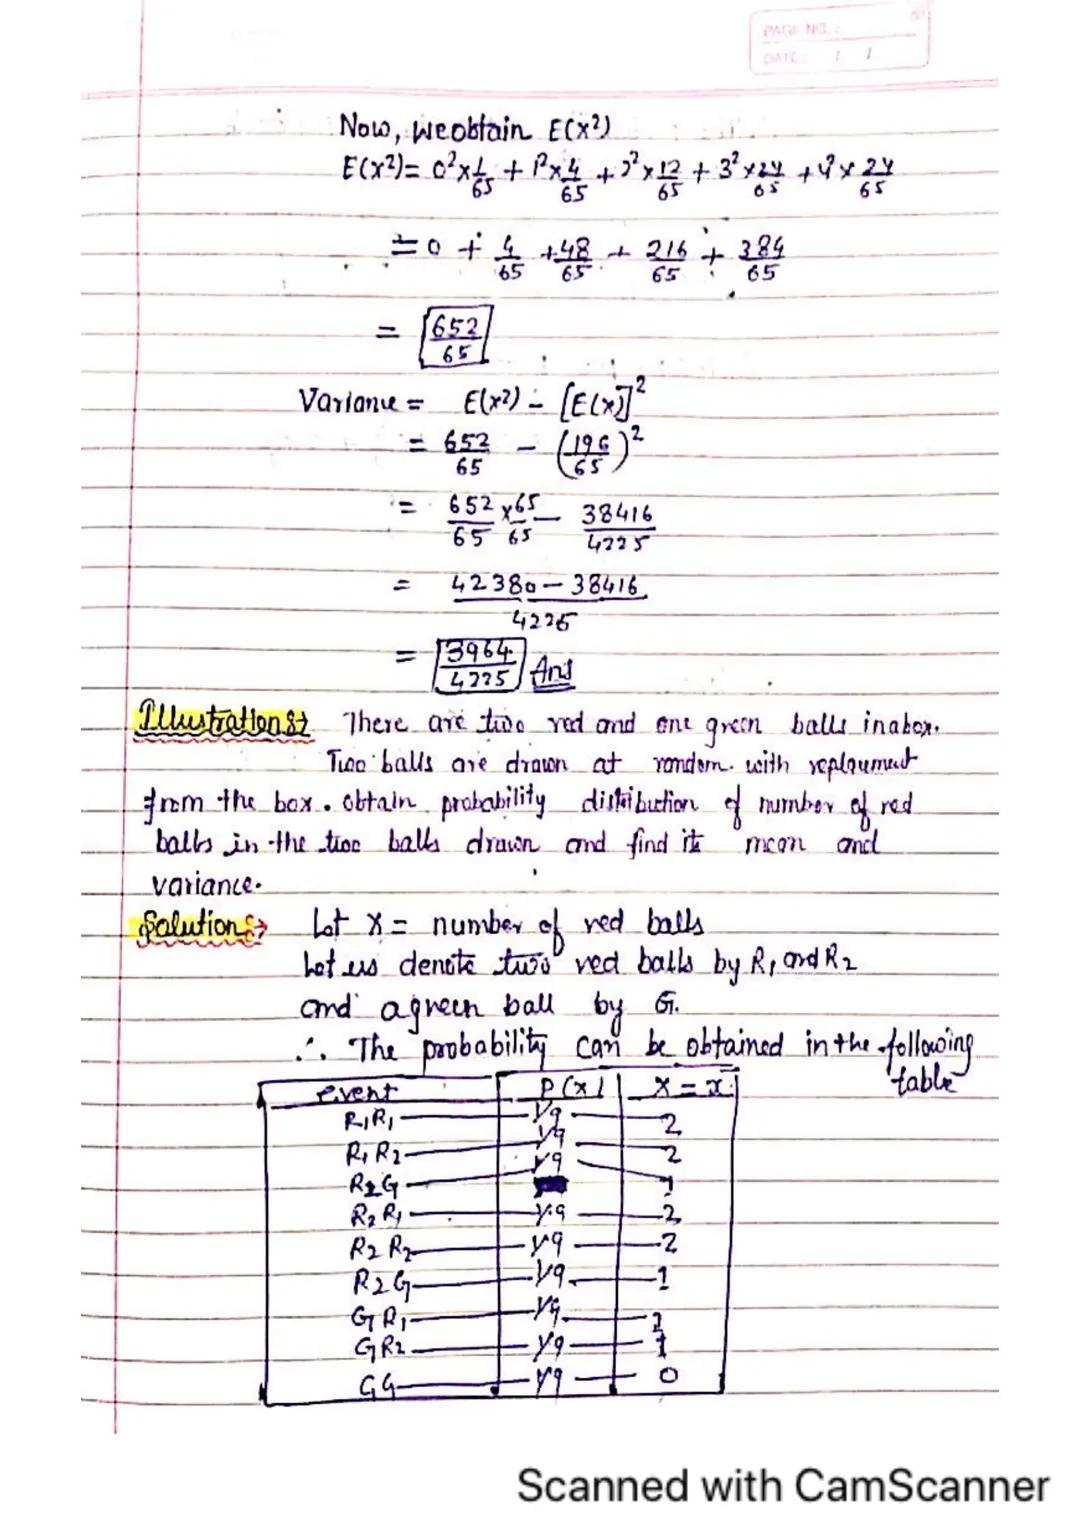 PAGE NO.:
DATE: / /
Now, we obtain E(x²)
E(x²)= 0²x1/65 + 1²x4/65 + 2²x12/65 + 3²x24/65 + 4²x24/65
= 0 + 4/65 + 48/65 + 216/65 + 384/65
= 652/65
Variance = E(x²) - [E(x)]²
= 652/65 - (196/65)²
= 652/65 x 65/65 - 38416/4225
= 42380 - 38416/4225
= 3964/4225 Ans
Illustration:→ There are two red and one green balls in a box.
Two balls are drawn at random with replaument
from the box. obtain probability distribution of number of red
balls in the two balls drawn and find it mean and
variance.
Solution:→ Let X = number of red balls
Let us denote two red balls by R₁ and R₂
and a green ball by G.
∴ The probability can be obtained in the following
table
event P(x) X = x
R₁R₁ 1/9 2
R₁R₂ 1/9 2
R₂G 1/9 1
R₂R₁ 1/9 2
R₂R₂ 1/9 2
R₂G 1/9 1
GR₁ 1/9 1
GR₂ 1/9 1
GG 1/9 0
Scanned with CamScanner